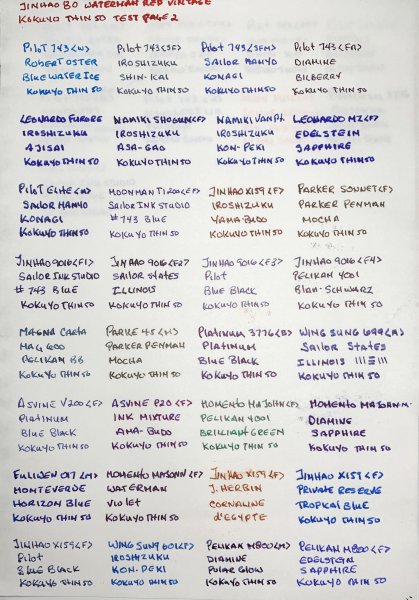 JINHAO 80 WATERMAN RED VINTAGE
KOKUYO THIN 50 TEST PAGE 2
Pilot 743<W>
ROBERT OSTER
BLUE WATER ICE
KOKUYO THIN 50
Pilot 743<SF>
IROSHIZUKU
SHIN-KAI
KOKUYO THIN 50
Pilot 743<SFM>
SAILOR MANYO
KONAGI
KOKUYO THIN 50
Pilot 743<FA>
DIAMINE
BILBERRY
KOKUYO THIN 50
LEONARDO FURORE
IROSHIZUKU
AJISAI
KOKUYO THIN 50
NAMIKI SHOGUN<F>
IROSHIZUKU
ASA-GAO
KOKUYO THIN 50
NAMIKI
IROSHIZUKU
KON-PEKI
KOKUYO THIN 50
LEONARDO MZ<F>
EDELSTEIN
SAPPHIRE
KOKUYO THIN 50
PILOT ELITE<M>
SAILOR MANYO
KONAGI
KOKUYO THIN 50
MOONMAN Ti200<F>
SAILOR INK STUDIO
#743 BLUE
KOKUYO THIN 50
JINHAO X159<F>
IROSHIZUKU
YAMA-BUDO
KOKUYO THIN 50
PARKER SONNET<F>
PARKER PENMAN
MOCHA
KOKUYO THIN 50
JINHAO 9016<F1>
SAILOR INK STUDIO
#743 BLUE
KOKUYO THIN 50
JINHAO 9016<F2>
SAILOR STATES
ILLINOIS
KOKUYO THIN 50
JINHAO 9016<F3>
Pilot
BLUE Black
KOKUYO THIN 50
JINHAO 9016<F4>
PELIKAN 4001
Blau-Schwarz
KOKUYO THIN 50
MAGNA CARTA
MAG 600
PELIKAN BB
KOKUYO THIN 50
PARKER 45<M>
PARKER PENMAN
MOCHA
KOKUYO THIN 50
PLATINUM 3776<B>
PLATINUM
BLUE BLACK
KOKUYO THIN 50
WING SUNG 699<M>
SAILOR STATES
ILLINOIS
KOKUYO THIN 50
ASVINE V200<F>
PLATINUM
BLUE BLACK
KOKUYO THIN 50
ASVINE P20<F>
INK MIXTURE
AMA-BUDO
KOKUYO THIN 50
MOMENTO MAJOHN<F>
PELIKAN 4001
BRILLIANT GREEN
KOKUYO THIN 50
MOMENTO
DIAMINE
SAPPHIRE
KOKUYO THIN 50
FULIWEN 017<M>
MONTEVERDE
HORIZON BLUE
KOKUYO THIN 50
MOMENTO <F>
WATERMAN
VIOLET
KOKUYO THIN 50
JINHAO X159<F>
J. HERBIN
CORNALINE
d'EGYPTE
JINHAO X159<F>
PRIVATE RESERVE
TROPICAL BLUE
KOKUYO THIN 50
JINHAO X159<F>
Pilot
BLUE BLACK
KOKUYO THIN 50
WING SUNG 601<F>
IROSHIZUKU
KON-PEKI
KOKUYO THIN 50
PELIKAN M800<M>
DIAMINE
POLAR GLOW
KOKUYO THIN 50
PELIKAN M800<F>
EDELSTEIN
SAPPHIRE
KOKUYO THIN 50